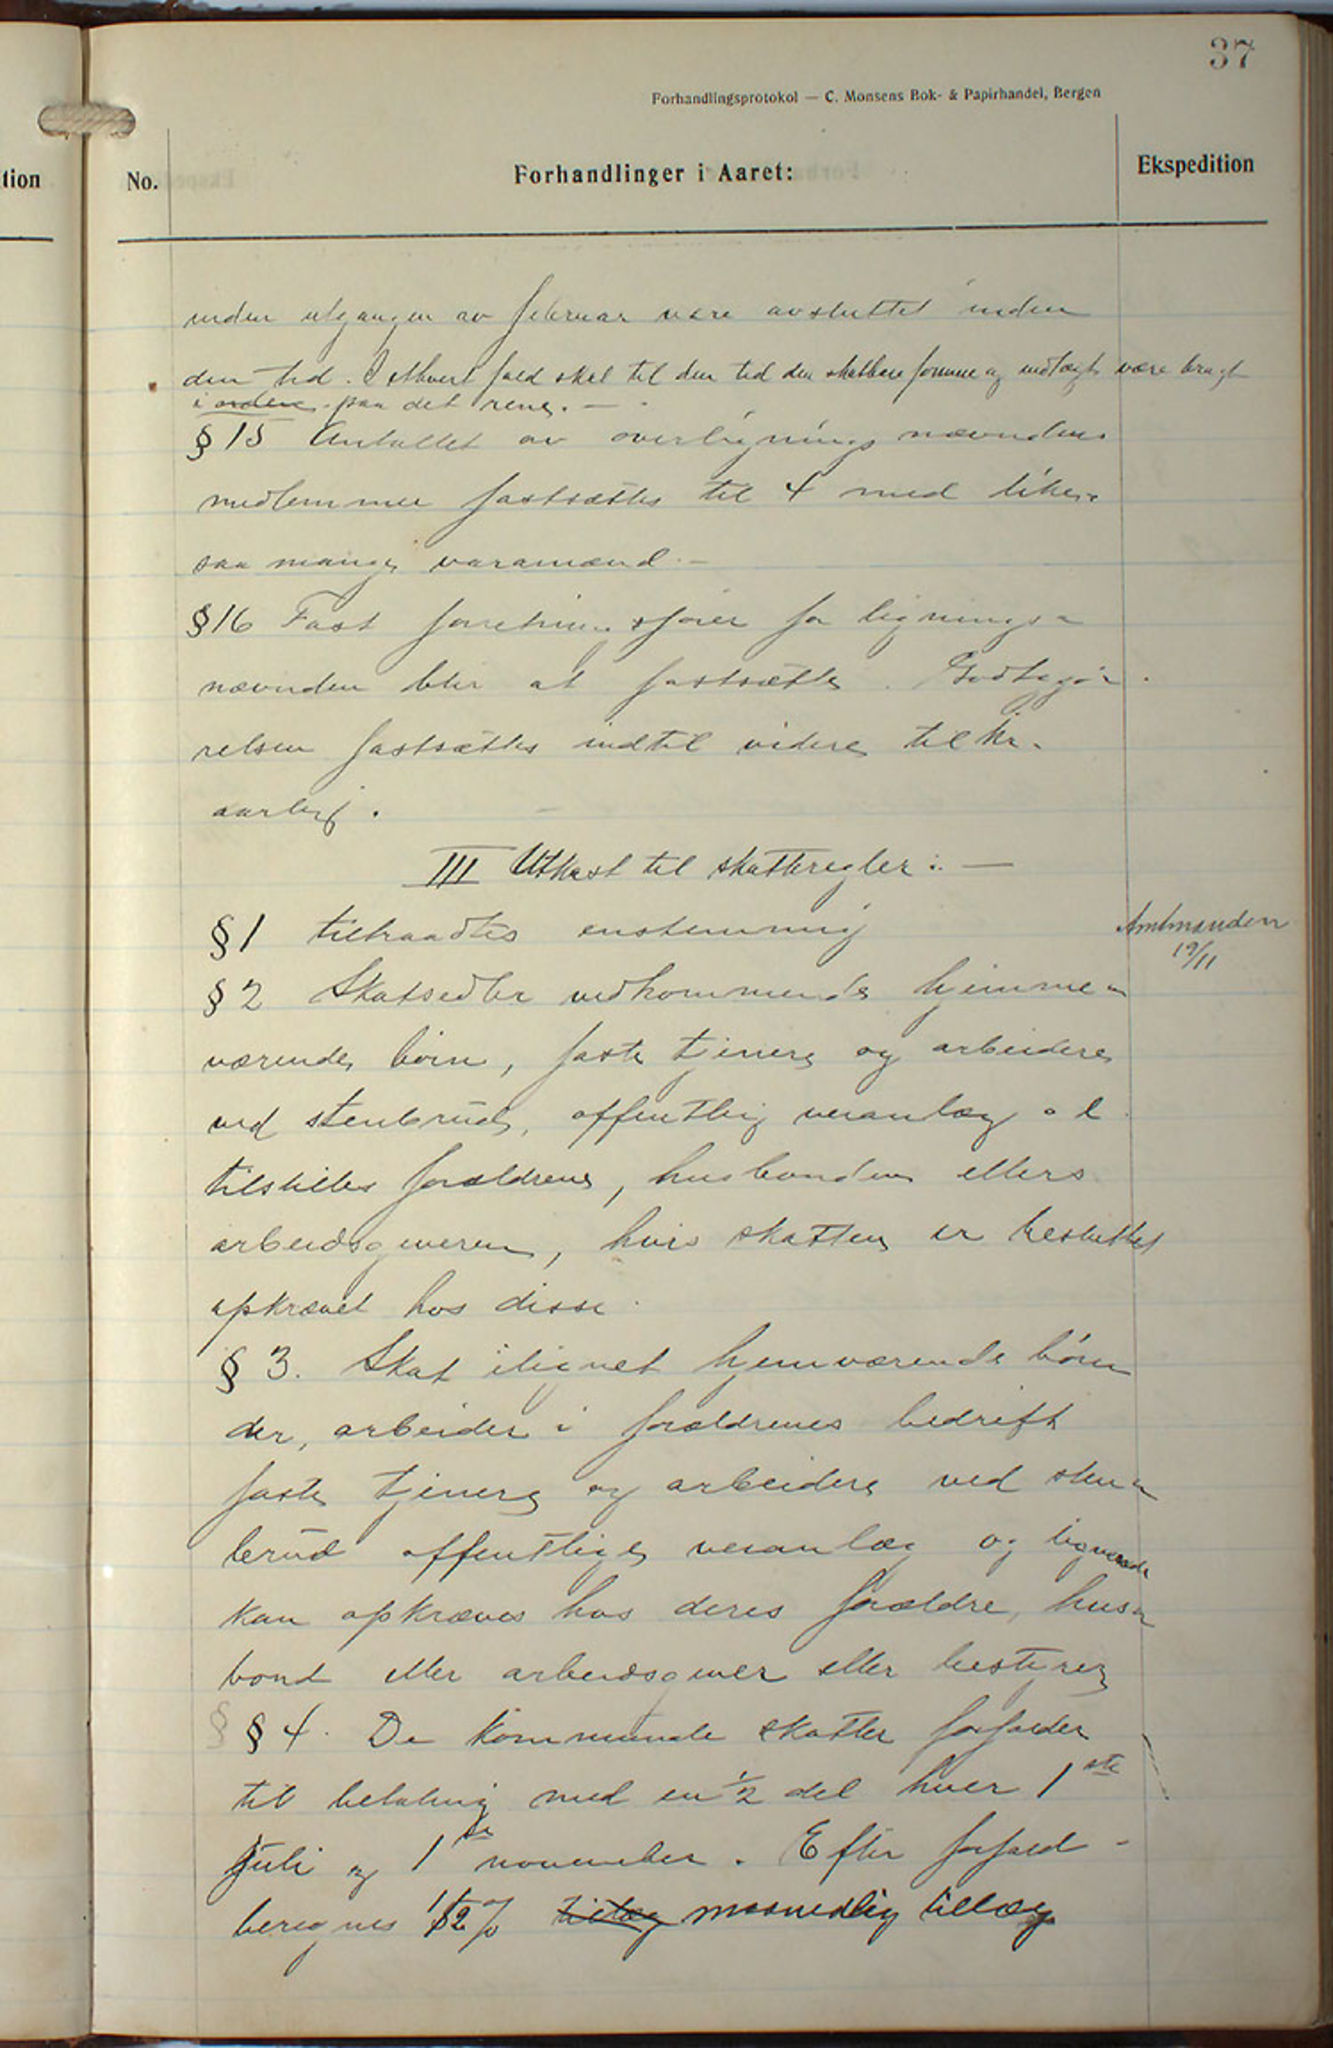 37
Forhandlingsprotokol — C. Monsens Bok- & Papirhandel, Bergen
tion
No.
Forhandlinger i Aaret:
Ekspedition
inden utgangen av februar være avsluttet inden
den tid. I ethvert fald skal til den tid den skatbare formue og indtægt være bragt
i orden paa det rene. —
§ 15 Antallet av overlignings nævndens
medlemmer fastsættes til 4 med like-
saa mange varamænd. —
§ 16 Fast forretningsfører for lignings-
nævnden blir at fastsætte. Godtgjø-
relsen fastsættes indtil videre til kr.
aarlig.
III Utkast til skatteregler: —
§ 1 tiltraadtes enstemmig
Amtmanden
19/11
§ 2 Skatsedler vedkommende hjemme-
værende børn, faste tjenere og arbeidere
ved stenbrud, offentlig veranlæg o l
tilstilles forældrene, husbonden ellers
arbeidsgiveren, hvis skatten er besluttet
opkrævet hos disse.
§ 3. Skat ilignet hjemværende børn
der, arbeider i forældrenes bedrift
faste tjenere og arbeidere ved sten-
brud offentlige veranlæg og lignende
kan opkræves hos deres forældre, hus-
bond eller arbeidsgiver eller bestyrer
§ § 4. De kommunale skatter forfalder
til betaling med en ½ del hver 1ste
juli og 1ste november. Efter forfald -
beregnes 1/2 % tillæg maanedlig tillæg